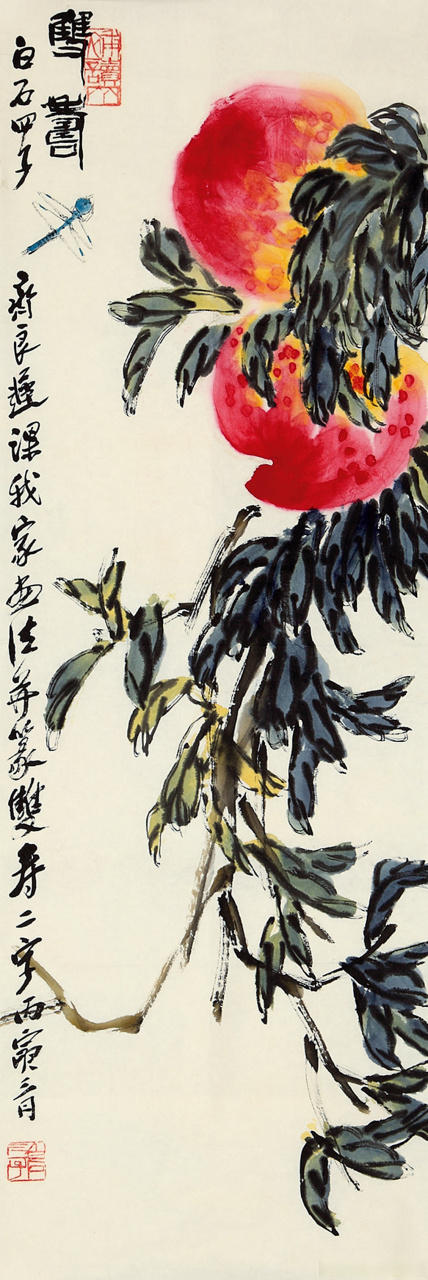 雙壽
白石四子
齊良遲課我家画法并篆雙寿二字丙寅月